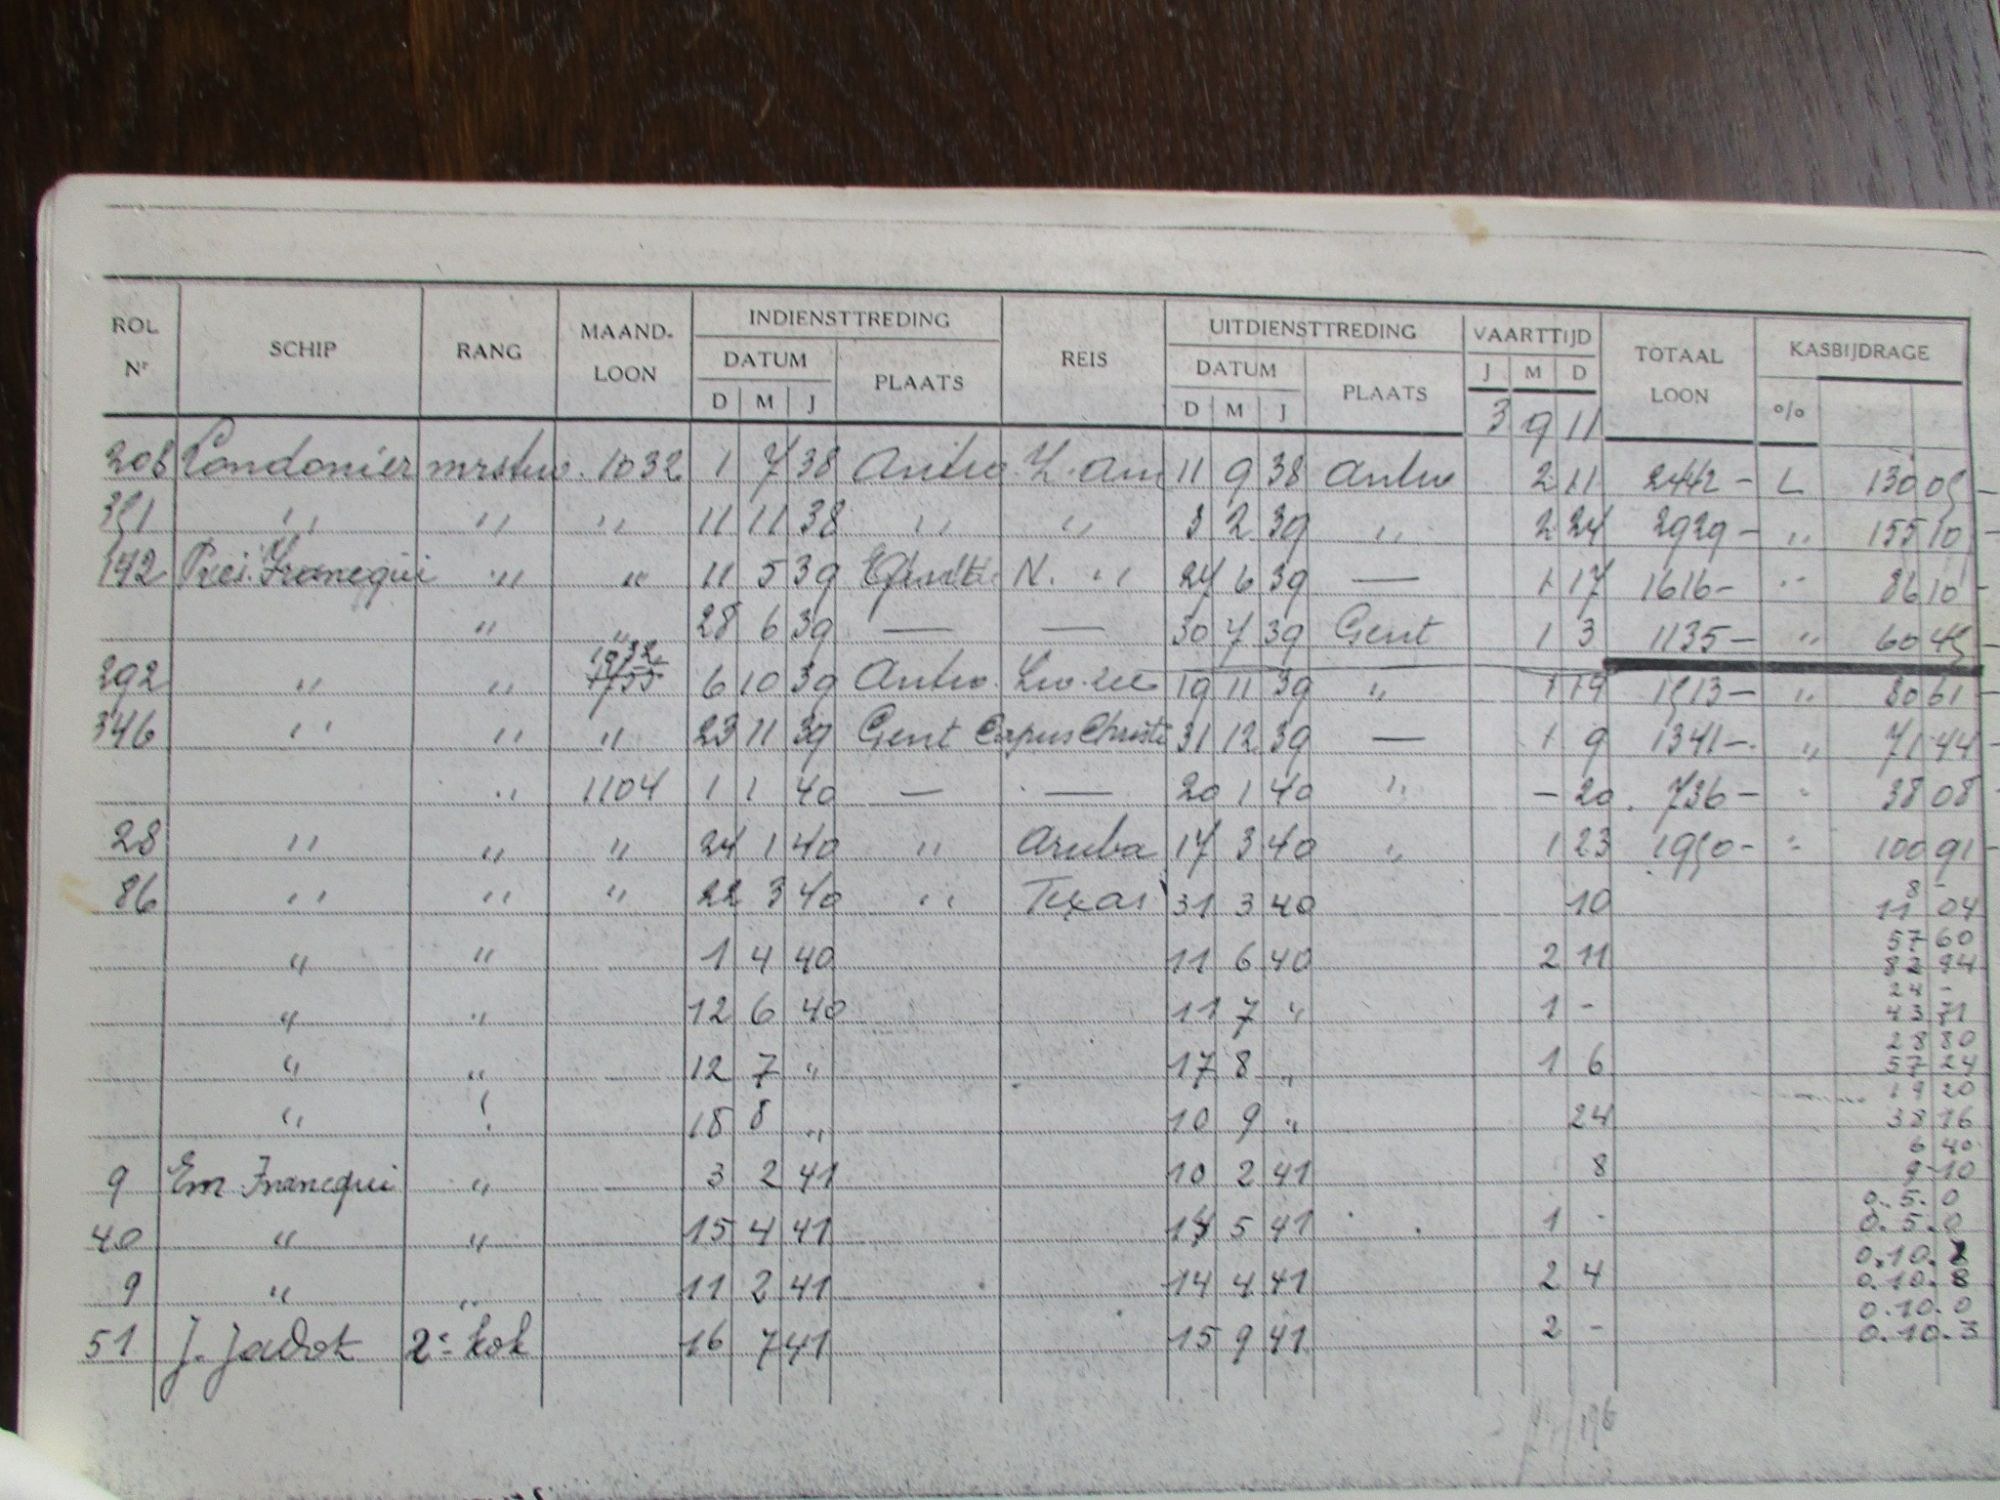 ROL Nr SCHIP RANG MAAND-LOON INDIENSTTREDING REIS UITDIENSTTREDING VAARTTIJD TOTAAL LOON KASBIJDRAGE
DATUM PLAATS DATUM PLAATS J M D %
D M J D M J 3 9 11
208 Londonier mrstw. 1032 1 7 38 Antw Z. Am 11 9 38 Antw 2 11 2442 - L 130 05
351 " " " 11 11 38 " " 3 2 39 " 2 24 2929 - " 155 10
142 Pres. Franequi " " 11 5 39 N. " 24 6 39 — 1 17 1616 - " 86 10
" " 28 6 39 — — 30 7 39 Gent 1 3 1135 - " 60 45
292 " " 1032 6 10 39 Antw. 19 11 39 " 1 14 1513 - " 80 61
346 " " " 23 11 39 Gent Corpus Christi 31 12 39 — 1 9 1341 - " 71 44
" 1104 1 1 40 — — 20 1 40 " - 20 736 - " 38 08
28 " " " 24 1 40 " Aruba 17 3 40 " 1 23 1950 - " 100 91
86 " " " 22 3 40 " Texas 31 3 40 10 8 - 11 04
" " 1 4 40 11 6 40 2 11 57 60 82 94
" " 12 6 40 11 7 " 1 - 24 - 43 71
" " 12 7 " 17 8 " 1 6 28 80 57 24
" " 18 8 " 10 9 " 24 19 20 38 16
9 Em Franequi " 3 2 41 10 2 41 8 6 40 9 10
40 " " 15 4 41 14 5 41 1 - 0. 5. 0 0. 5. 0
9 " " 11 2 41 14 4 41 2 4 0.10. 0.10.8
51 J. Jadot 2e kok 16 7 41 15 9 41 2 - 0.10.0 0.10.3